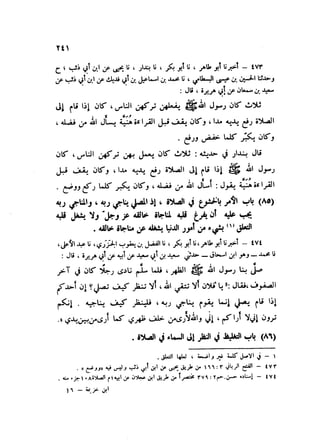 ٢٤١
٤٧٣ – أخبرنا أبو طاهر ، نا أبو بكر ، نا بندار ، نا يحيى عن ابن أبي ذئب ؛ ح
وحدثنا الحسين بن عيسى البسطامي ، نا محمد بن إسماعيل بن أبي فديك عن ابن أبي ذئب عن
سعيد بن سمعان عن أبي هريرة ، قال :
ثلاث كان رسول الله ﷺ يفعلهن تركهن الناس ، كان إذا قام إلى
الصلاة رفع يديه مدا ، وكان يقف قبل القراءة هنية يسأل الله من فضله ،
وكان يكبر كلما خفض ورفع .
قال بندار في حديثه : ثلاث كان يعمل بهن تركهن الناس ، كان
رسول الله ﷺ إذا قام إلى الصلاة رفع يديه مدا ، وكان يقف قبل
القراءة هنية يقول : أسأل الله من فضله ، وكان يكبر كلما ركع ووضع .
(٨٥) باب الأمر بالخشوع في الصلاة ، إذ المصلي يناجي ربه ، والمناجي ربه
يجب عليه أن يفرغ قلبه لمناجاة خالقه عز وجل ولا يشغل قلبه
التعلق (١) بشيء من أمور الدنيا يشغله عن مناجاة خالقه .
٤٧٤ – أخبرنا أبو طاهر ، نا أبو بكر ، نا الفضل بن يعقوب الجزري ، نا عبد الأعلى ،
نا محمد – وهو ابن إسحاق – حدثني سعيد بن أبي سعيد عن أبيه عن أبي هريرة ، قال :
صلى بنا رسول الله ﷺ الظهر ، فلما سلم نادى رجلا كان في آخر
الصفوف ، فقال : يا فلان ألا تتقي الله ، ألا تنظر كيف تصلي ؟ إن أحدكم
إذا قام يصلي إنما يقوم يناجي ربه ، فلينظر كيف يناجيه . إنكم
ترون أني لا أراكم ، إني والله لأرى من خلف ظهري كما أرى من بين يدي .
(٨٦) باب التغليظ في النظر إلى السماء في الصلاة .
١ – في الأصل كلمة غير
٤٧٣ –
٤٧٤ –
ابن خزيمة – ١٦